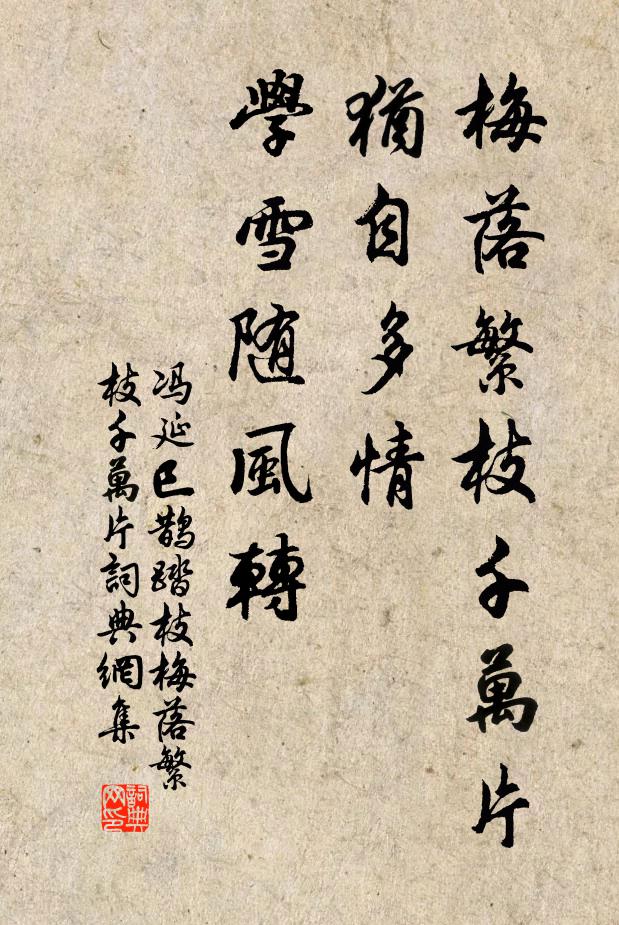 梅落繁枝千萬片
猶自多情
學雪随風轉
冯延巳鹊踏枝梅落繁
枝千萬片詞典網集
詞典
网印